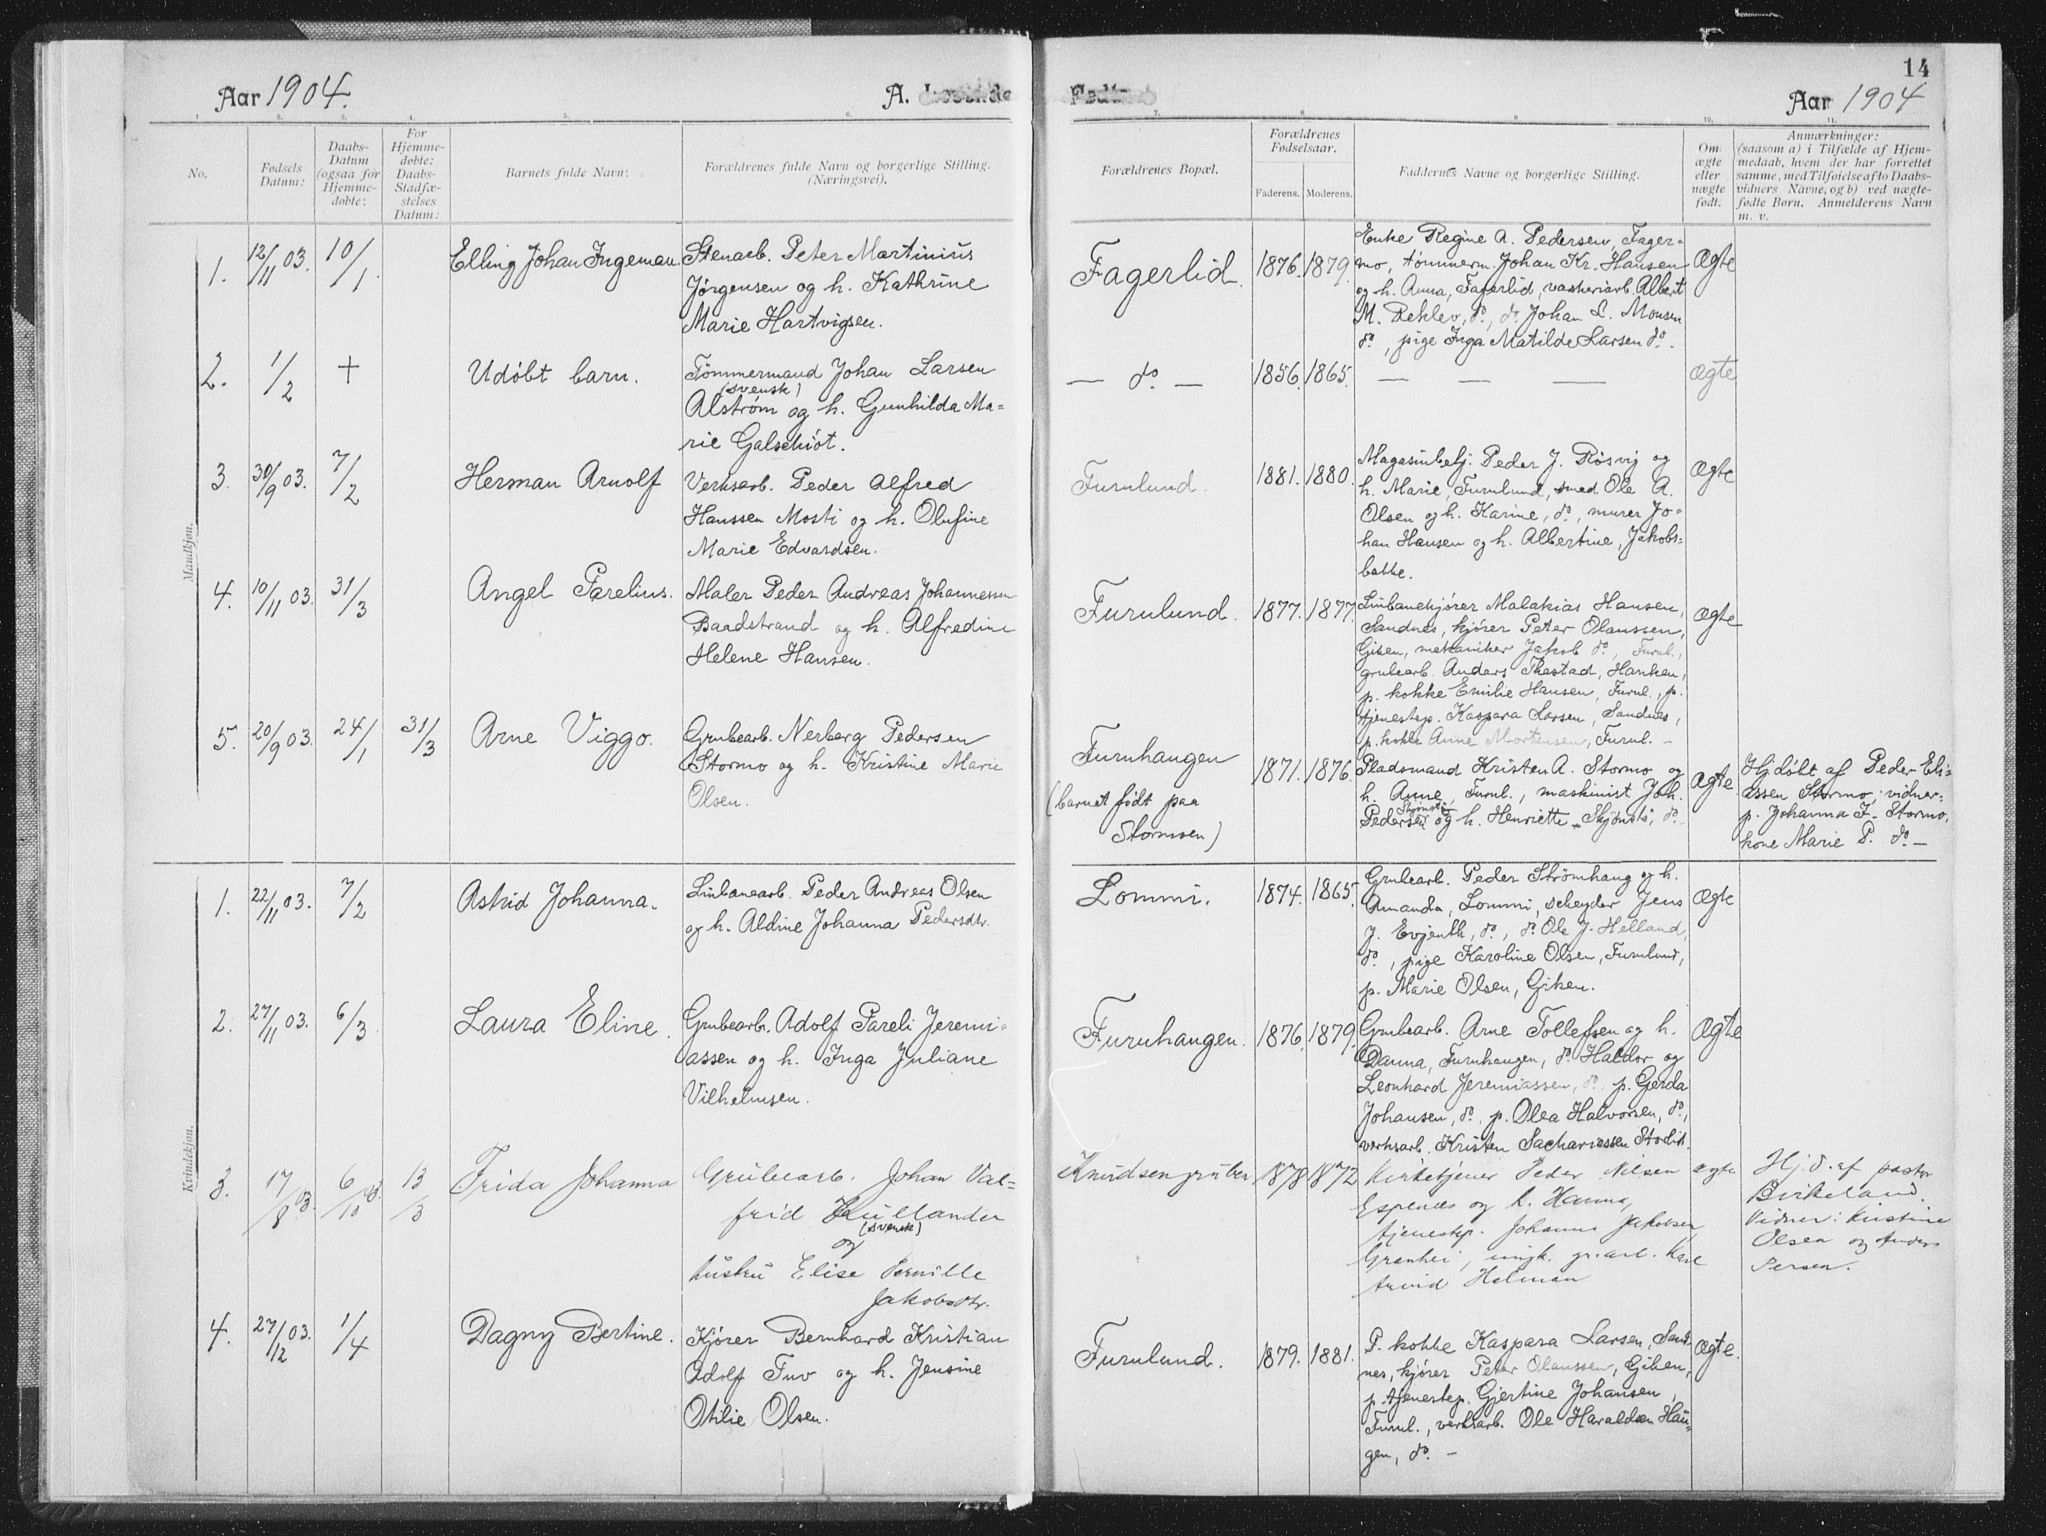 14
Aar 1904.
A. Levende
Fødte
Aar 1904
1.
2.
3.
4.
5.
6.
7.
8.
9.
10.
11.
No.
Fødsels
Datum:
Daabs-
Datum
(ogsaa for
Hjemme-
døbte:
For
Hjemme-
døbte:
Daabs-
Stadfæ-
stelses
Datum:
Barnets fulde Navn:
Forældrenes fulde Navn og borgerlige Stilling.
(Næringsvei).
Forældrenes Bopæl.
Forældrenes
Fødselsaar.
Faderens.
Moderens.
Faddernes Navne og borgerlige Stilling.
Om
ægte
eller
uægte
født.
Anmærkninger:
(saasom a) i Tilfælde af Hjem-
medaab, hvem der har forrettet
samme, med Tilføielse af to Daabs-
vidners Navne, og b) ved uægte-
fødte Børn. Anmelderens Navn
m. v.
Mandkjøn.
1. 12/11 03. 10/1. Elling Johan Ingeman.
Stenarb. Peter Martinius
Jørgensen og h. Kathrine
Marie Hartvigsen.
Fagerlid. 1876. 1879.
Enke Regine A. Pedersen, Fager=
mo, tømmerm. Johan Kr. Hansen
og h. Anna, Fagerlid, vaskeriarb. Albert
M. Deklev, do, do Johan L. Monsen
do, pige Inga Matilde Larsen do.
Ægte
2. 1/2 + Udøbt barn.
Tømmermand Johan Larsen
(svensk)
Alstrøm og h. Gunhilda Ma=
rie Galschiøt.
— do. — 1856. 1865. — — — ægte
3. 30/9 03. 7/2 Herman Arnolf
Verksarb. Peder Alfred
Hanssen Mosti og h. Olufine
Marie Edvardsen.
Furulund. 1881. 1880.
Magasinbetj. Peder J. Røsvig og
h. Marie, Furulund, smed Ole A.
Olsen og h. Karine, do, murer Jo=
han Hansen og h. Albertine, Jakobs=
bakke.
Ægte
4. 10/11 03. 31/3 Angel Parelius.
Maler Peder Andreas Johannessen
Baadstrand og h. Alfredine
Helene Hansen.
Furulund. 1877. 1877.
Linbanekjører Malakias Hansen,
Sandnes, kjører Peter Olaussen,
Giken, mekaniker Jakob do, Furul.,
grubearb. Anders Thestad, Hanken,
p. kokke Emilie Hansen, Furul., p.
tjenestep. Kaspara Larsen, Sandnes,
p. kokke Anne Mortensen, Furul. –
Ægte
5. 20/9 03. 24/1 31/3 Arne Viggo.
Grubearb. Nerberg Pedersen
Stormo og h. Kristine Marie
Olsen.
Furuhaugen
(barnet født paa
Stormoen)
1871. 1876.
Pladsmand Kristen A. Stormo og
h. Anne, Furul., maskinist Joh.
Pedersen og h. Henriette Skjønstå, do –
Ægte
Hj.døbt af Peder Eli=
assen Stormo; vidner:
p. Johanna J. Stormo,
kone Marie P. do –
Kvindekjøn.
1. 22/11 03. 7/2 Astrid Johanna.
Linbanearb. Peder Andreas Olsen
og h. Aldine Johanna Pedersdtr.
Lommi. 1874. 1865.
Grubearb. Peder Strømhaug og h.
Amanda, Lommi, scheyder Jens
J. Evjenth, do, do Ole J. Helland,
do, pige Karoline Olsen, Furulund,
p. Marie Olsen, Giken.
Ægte
2. 27/11 03. 6/3 Laura Eline.
Grubearb. Adolf Pareli Jeremi=
assen og h. Inga Juliane
Vilhelmsen.
Furuhaugen. 1876. 1879.
Grubearb. Arne Tollefsen og h.
Danna, Furuhaugen, do Haldor og
Leonhard Jeremiassen, do, p. Gerda
Johansen, do, p. Olea Halvorsen, do,
verksarb. Kristen Sachariassen Storli.
Ægte
3. 17/8 03. 6/10 03. 13/3 Frida Johanna
Grubearb. Johan Val=
frid Kullander
(svensk)
og
hustru Elise Pernille
Jakobsdtr.
Knudsengruben 1878 1872
Kirketjener Peder Nilsen
Espenes og h. Hanna,
tjenestep. Johanna Jakobsen,
Granhei, ungk. gr.arb. Karl
Arvid Helman
ægte
Hj. d. af pastor
Birkeland.
Vidner: Kristine
Olsen og Anders
Persen.
4. 27/12 03. 1/4 Dagny Bertine.
Kjører Bernhard Kristian
Adolf Fuv og h. Jensine
Otilie Olsen.
Furulund. 1879. 1881.
P. kokke Kaspara Larsen, Sand=
nes, kjører Peter Olaussen, Giken,
p. tjenestep. Gjertine Johansen,
Furul., verksarb. Ole Haraldsen Hau=
gen, do –
Ægte.